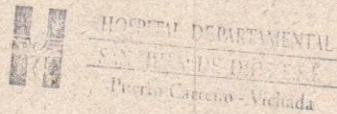 HOSPITAL DEPARTAMENTAL
SAN JUAN DE DIOS E.S.E.
Puerto Carreño - Vichada